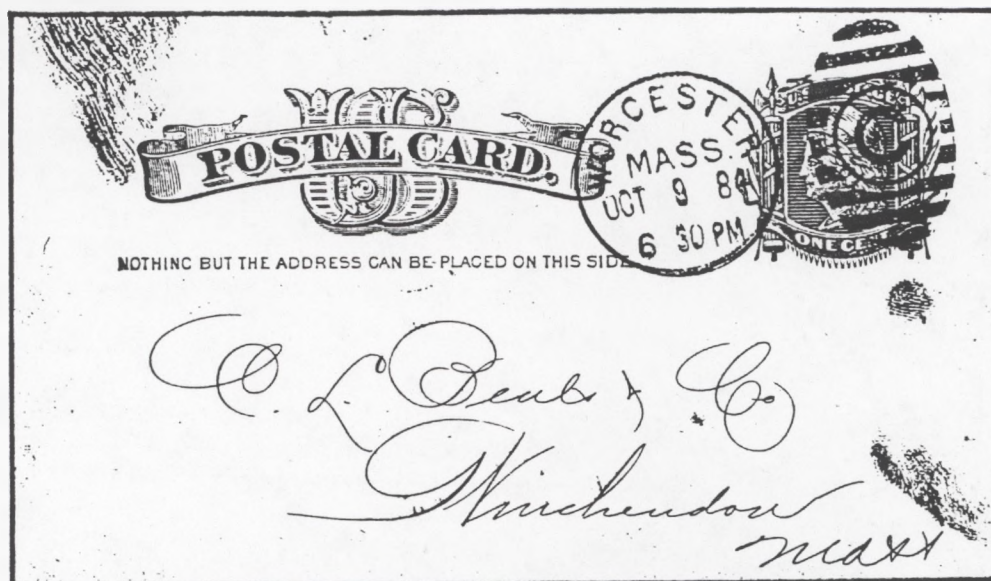 US
POSTAL CARD.
WORCESTER
MASS.
OCT 9 84
6 30 PM
C
ONE CENT
NOTHING BUT THE ADDRESS CAN BE PLACED ON THIS SIDE
C. L. Beals & Co
Winchendon
Mass